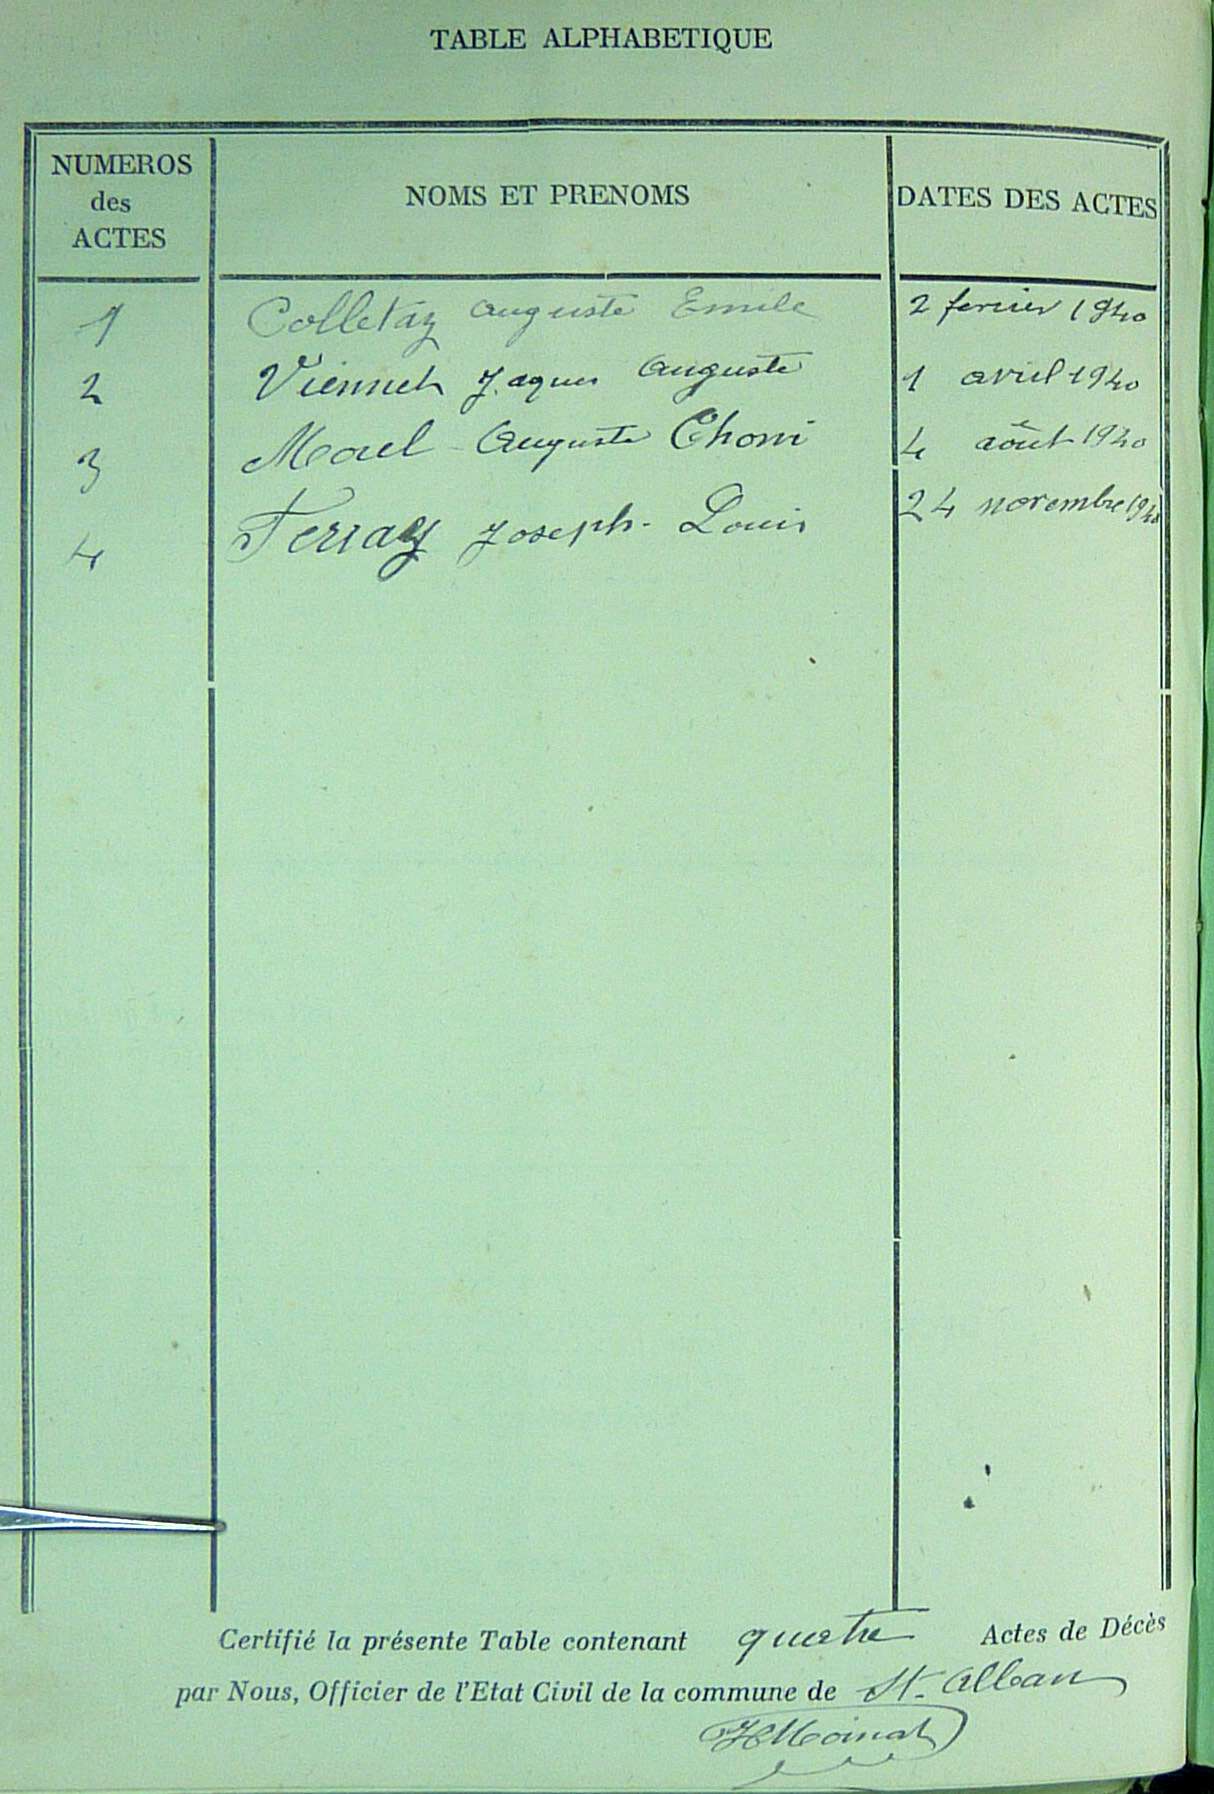 TABLE ALPHABETIQUE
NUMEROS des ACTES NOMS ET PRENOMS DATES DES ACTES
1 Colletaz Auguste Emile 2 fevrier 1940
2 Viennet Jaques Auguste 1 avril 1940
3 Morel Auguste 4 août 1940
4 Terraz Joseph-Louis 24 novembre 1940
Certifié la présente Table contenant quatre Actes de Décès
par Nous, Officier de l'Etat Civil de la commune de St. Alban